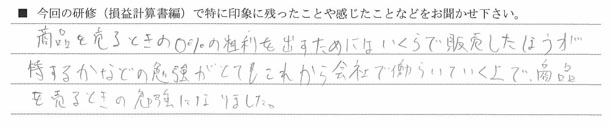 ■ 今回の研修（損益計算書編）で特に印象に残ったことや感じたことなどをお聞かせ下さい。
商品を売るときの○%の粗利を出すためにはいくらで販売したほうが
得するかなどの勉強がとてもこれから会社で働らいていく上で、商品
を売るときの勉強になりました。